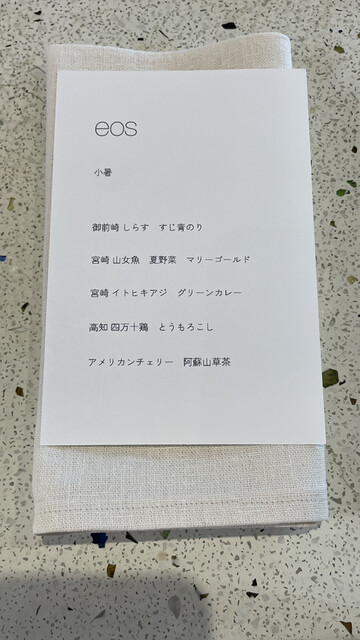 eos
小暑
御前崎 しらす　すじ青のり
宮崎 山女魚　夏野菜　マリーゴールド
宮崎 イトヒキアジ　グリーンカレー
高知 四万十鶏　とうもろこし
アメリカンチェリー　阿蘇山草茶